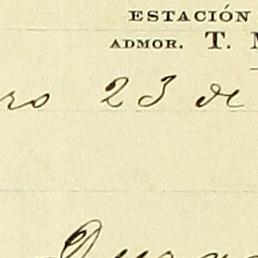 ESTACIÓN
ADMOR. T.
ro 23 de